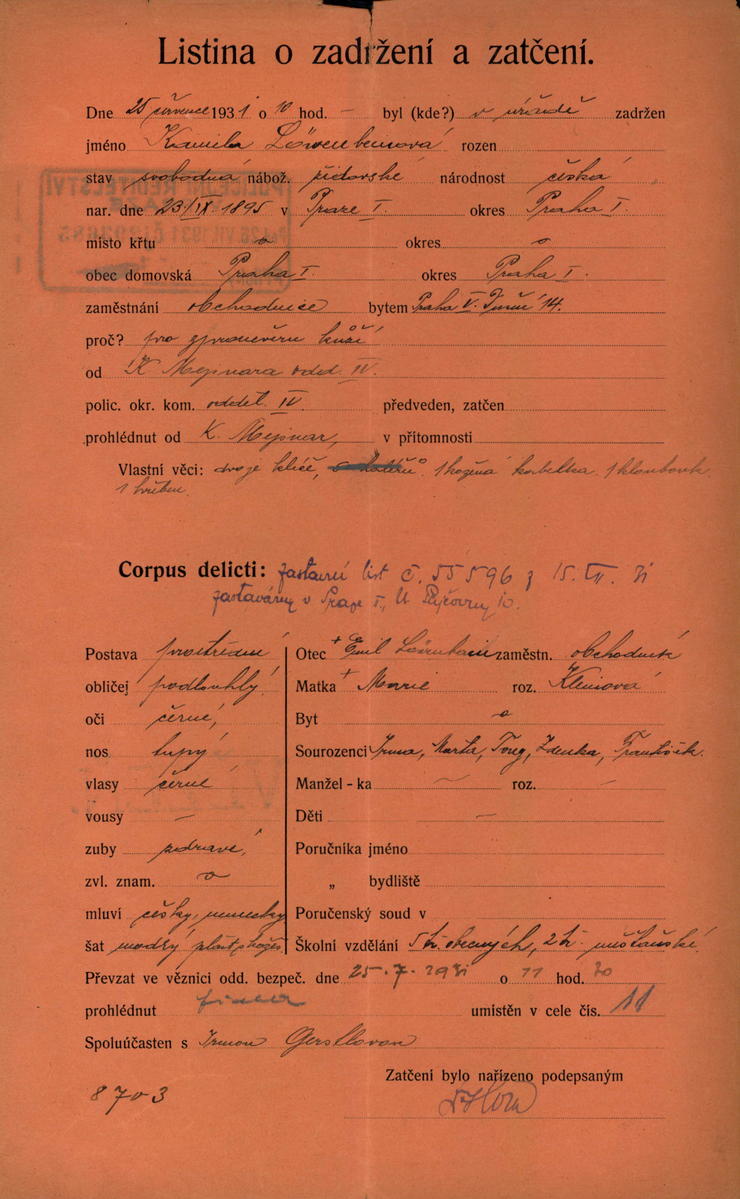 Listina o zadržení a zatčení.
Dne 25 července 1931 o 10 hod. — byl (kde?) v úřadě zadržen
jméno Kamila Löwenbeinová rozen
stav svobodná nábož. židovské národnost česká
nar. dne 23/IX 1895 v Praze I. okres Praha I.
místo křtu okres
obec domovská Praha I. okres Praha I.
zaměstnání obchodnice bytem Praha V. 14.
proč? pro zpronevěru kůží
od K Mejsnara odd. IV.
polic. okr. kom. odděl. IV. předveden, zatčen
prohlédnut od K. Mejsnar, v přítomnosti
Vlastní věci: dvoje klíče, 1 kožená kabelka. 1 klobouk.
1
Corpus delicti: zastavní list č. 55596 z 15. VII. 31
zastavárny v Praze I., U 10.
Postava prostřední
obličej podlouhlý
oči černé,
nos tupý
vlasy černé
vousy —
zuby zdravé,
zvl. znam.
mluví česky, německy
šat modrý plášť
Otec + Emil Löwenbein zaměstn. obchodník
Matka + Marie roz. Kleinová
Byt
Sourozenci Irma, Marta, Zdenka, František.
Manžel - ka — roz. —
Děti —
Poručníka jméno
„ bydliště
Poručenský soud v
Školní vzdělání 5 tř. obecných, 2 tř. měšťanské.
Převzat ve věznici odd. bezpeč. dne 25. 7. 1931 o 11 hod. 30
prohlédnut umístěn v cele čís. 11
Spoluúčasten s Irmou Gerstlovou
Zatčení bylo nařízeno podepsaným
8703